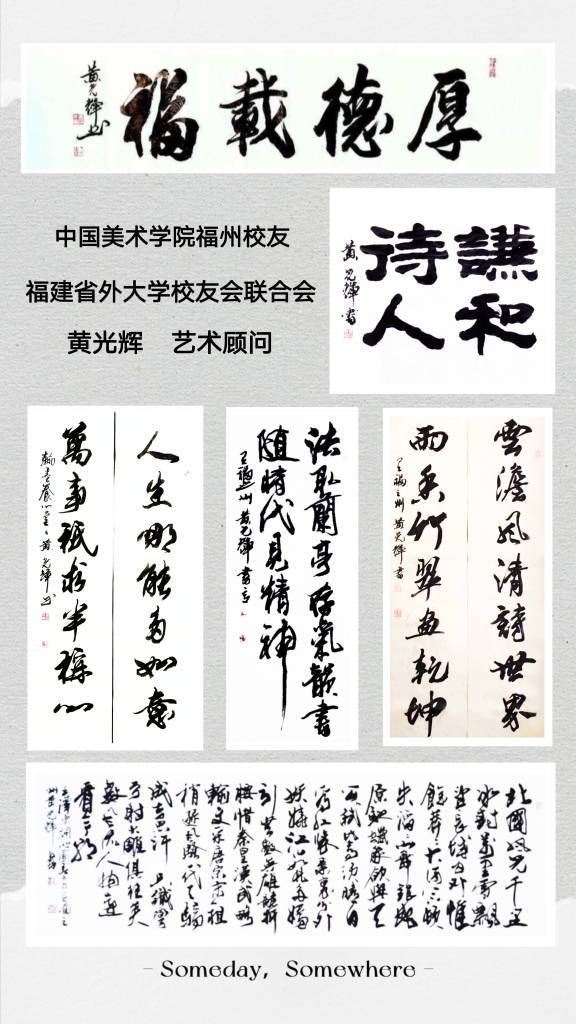 厚德載福
黄光輝书
中国美术学院福州校友
福建省外大学校友会联合会
黄光辉 艺术顾问
謙和
待人
黄光輝書
人生哪能多如意
萬事祇求半稱心
黄光輝书
法取蘭亭存氣韻書
随時代見精神
福州黄光輝書
雲澹風清詩世界
雨香竹翠画乾坤
福州黄光輝書
北國風光千里
冰封萬里雪飄
望長城内外惟
餘莽莽大河上下頓
失滔滔山舞銀蛇
原馳蠟象欲與天
公試比高須晴日
看红装素裹分外
妖嬈江山如此多嬌
引無數英雄競折
腰惜秦皇漢武略
輸文采唐宗宋祖
稍遜風騷一代天驕
成吉思汗只識彎
弓射大雕俱往矣
數風流人物還
看今朝
- Someday, Somewhere -